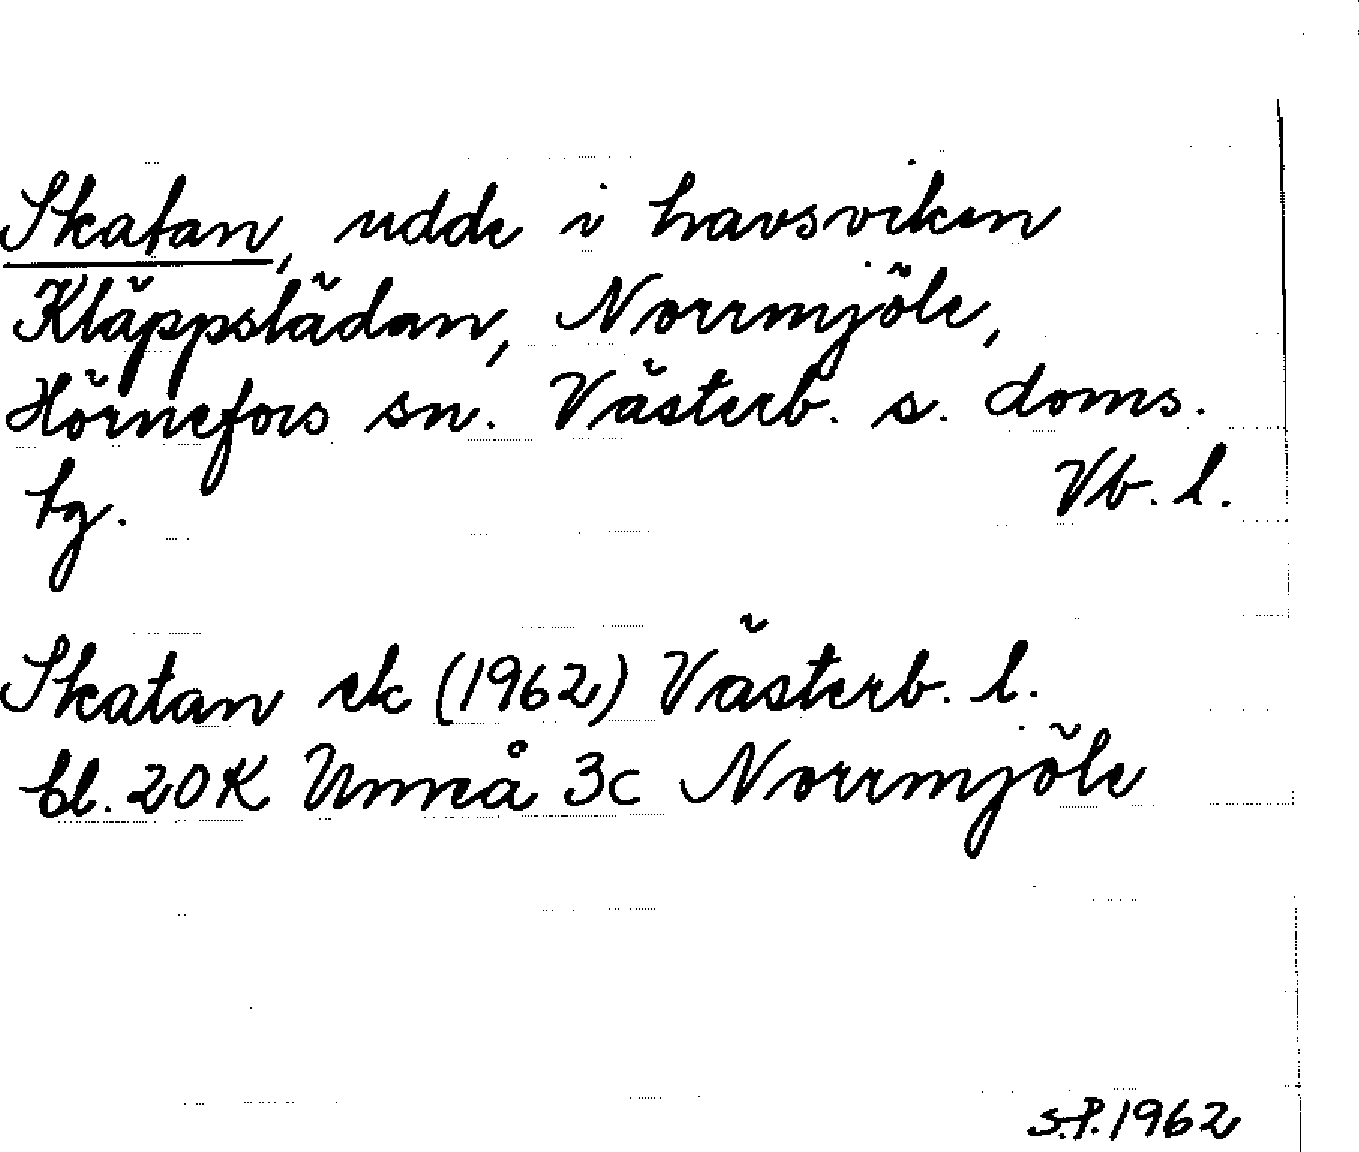 Skatan, udde i havsviken
Kläppslädan, Norrmjöle,
Hörnefors sn. Västerb. s. doms.
tg. Vb. l.
Skatan ek (1962) Västerb. l.
bl. 20K Umeå 3c Norrmjöle
S.P. 1962